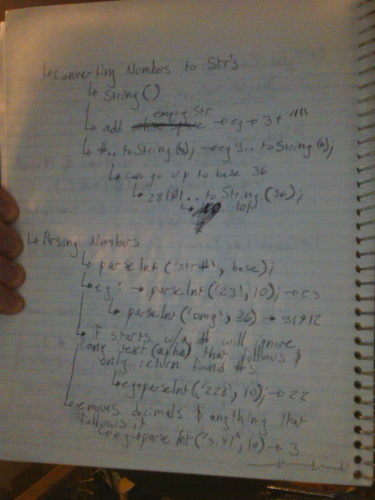 ↳ Converting Numbers to Str's
↳ String()
empty str
↳ add white space → eg → 3 + ""
↳ #..toString(b); → eg 3..toString(b);
↳ can go up to base 36
↳ 28101..toString(36);
↳ Parsing Numbers
↳ parseInt('str#', base);
↳ eg: → parseInt('23', 10); → 23
↳ parseInt('omg', 36) → 31912
↳ if starts w/ a # will ignore
any text (alpha) that follows &
only return found #'s
↳ eg → parseInt('22b', 10); → 22
↳ removes decimals & anything that
follows it
↳ eg → parseInt('3.41', 10) → 3